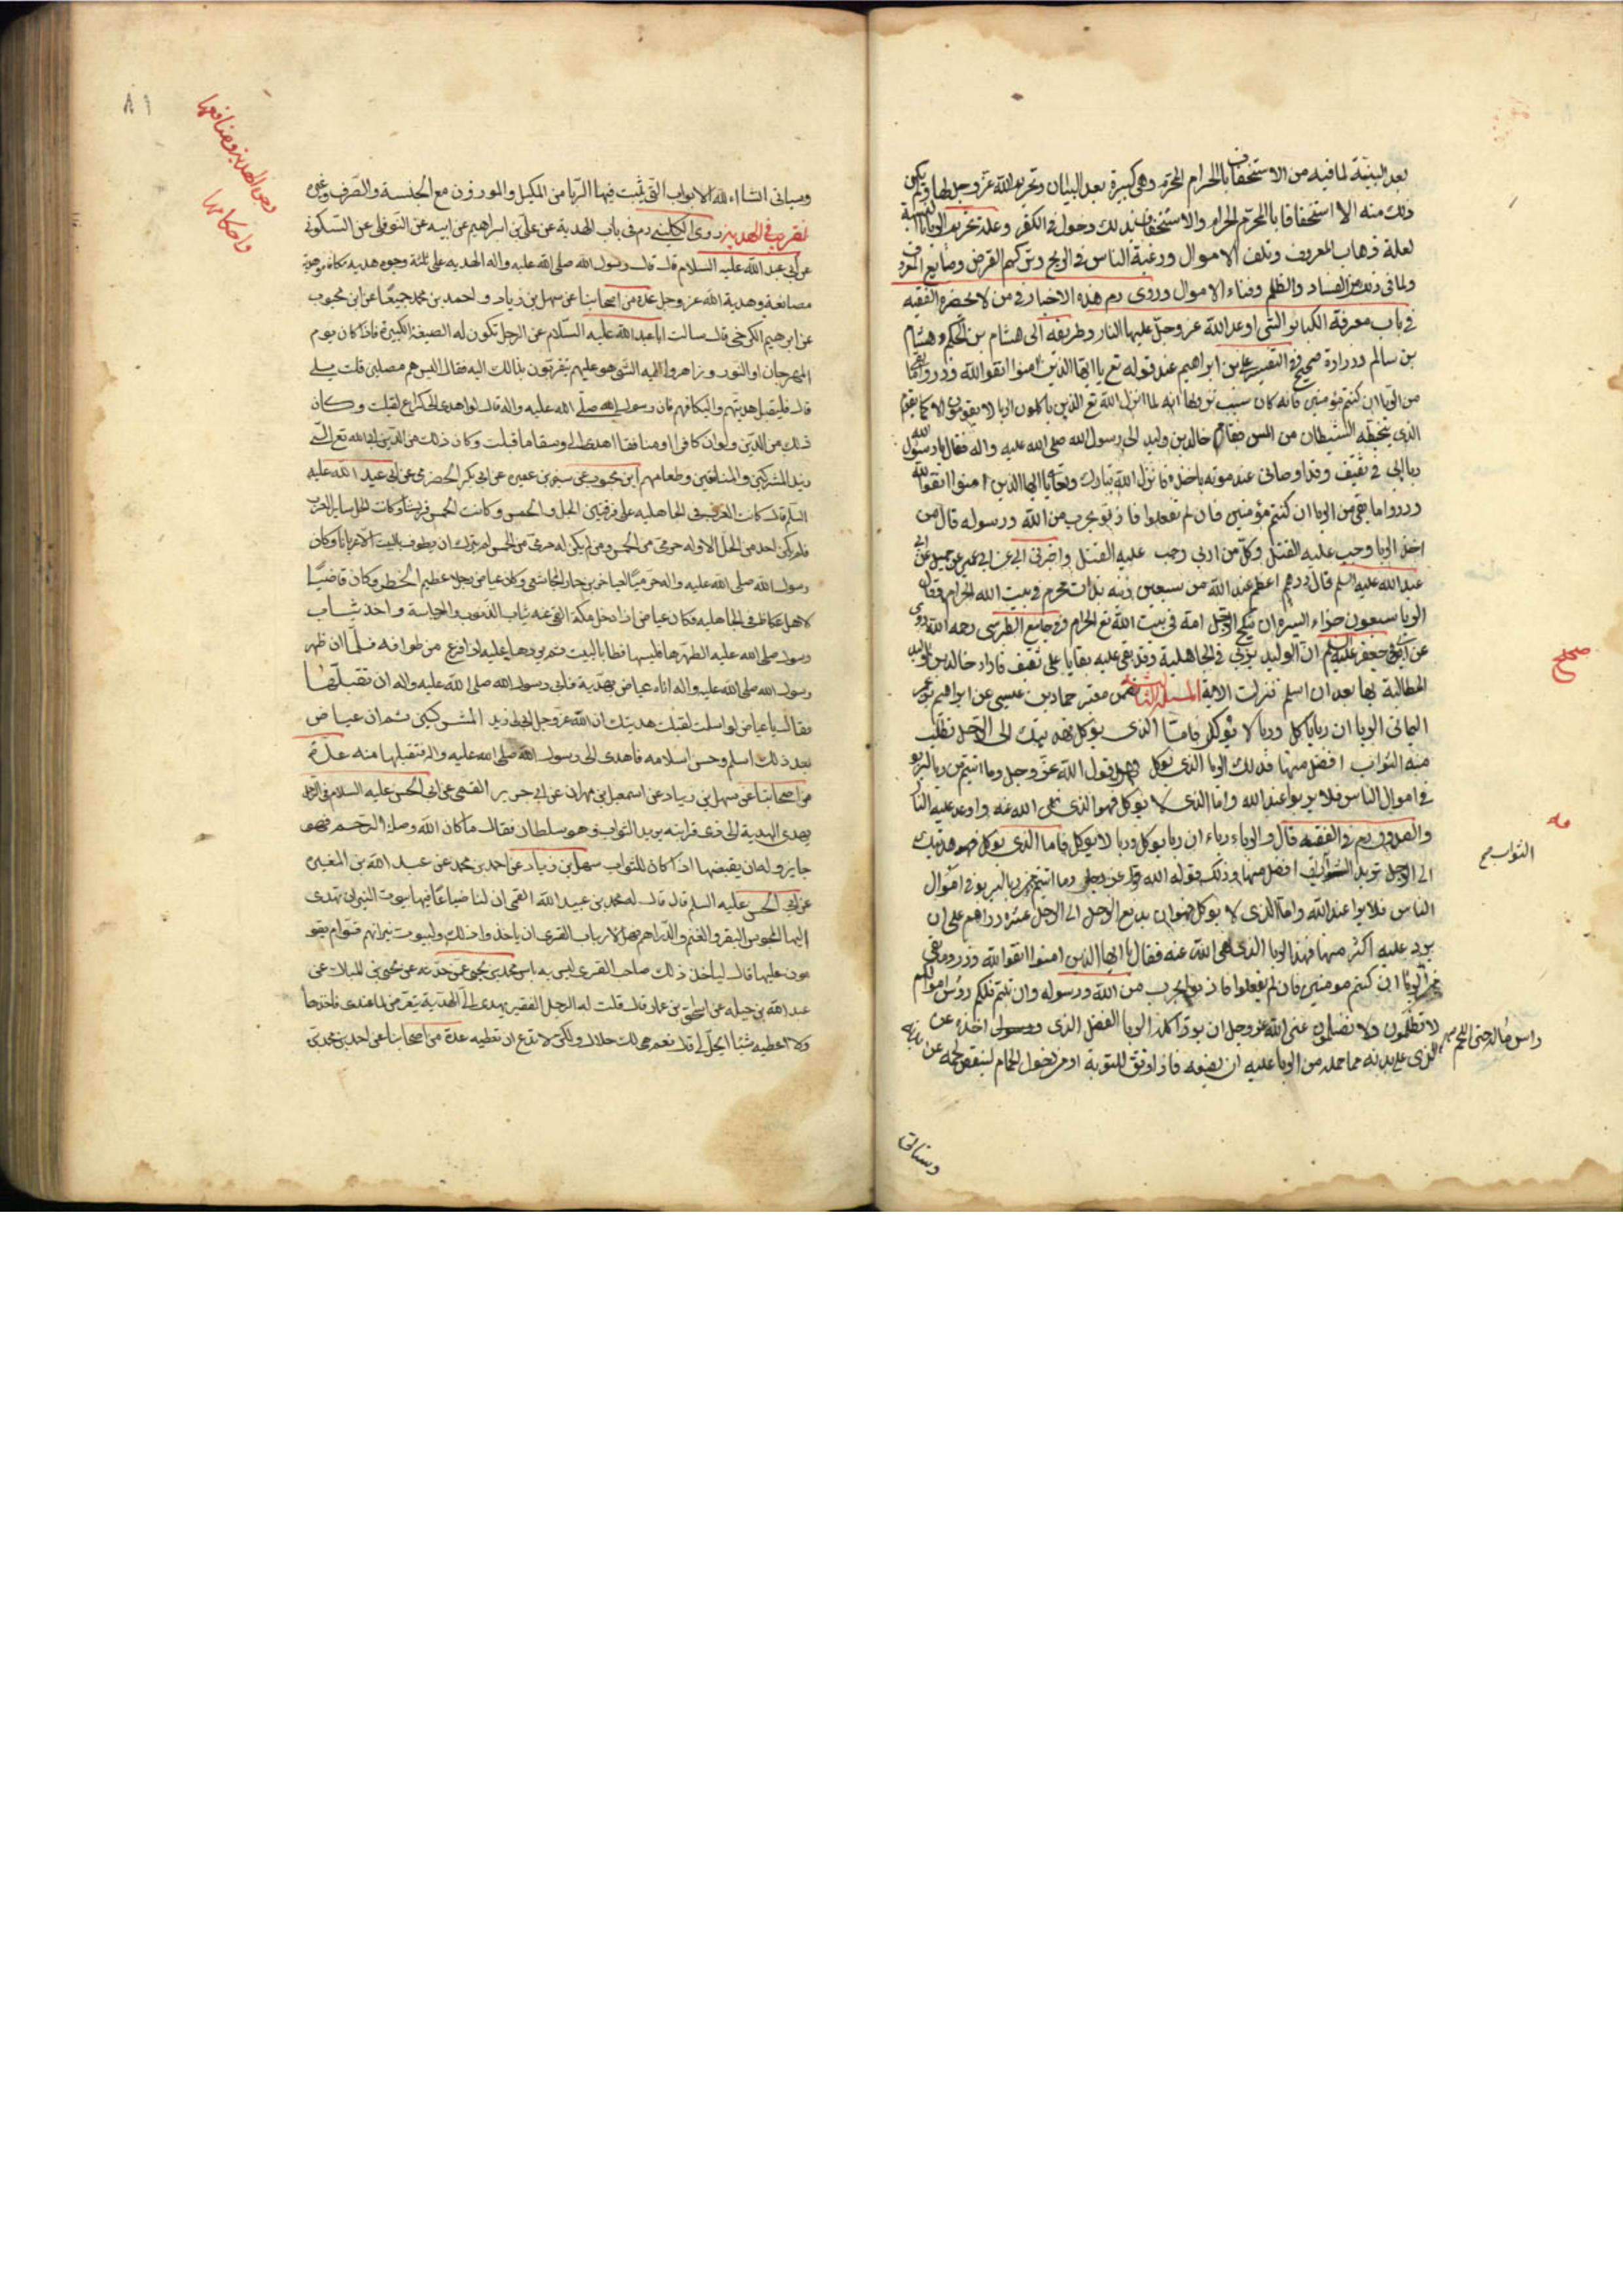 بعد البينة لما فيه من الاستخفاف بالحرام المحرم وهى كبيرة بعد البيان وتحريم الله عز وجل لها ولم يكن
ذلك منه الا استخفافا بالمحرم الحرام والاستخفاف بذلك دخول فى الكفر وعلة تحريم الربا بالنسية
لعلة ذهاب المعروف وتلف الاموال ورغبة الناس فى الربح وتركهم القرض وصنايع المعروف
ولما فى ذلك من الفساد والظلم وفناء الاموال وروى هذه الاخبار فى من لا يحضره الفقيه
فى باب معرفة الكبائر التى اوعد الله عز وجل عليها النار وطريقه الى هشام بن الحكم وهشام
بن سالم وزرارة صحيح فى التفسير على بن ابراهيم عند قوله تع يا ايها الذين امنوا اتقوا الله وذروا ما بقى
من الربا ان كنتم مؤمنين فانه كان سبب نزولها انه لما انزل الله تع الذين ياكلون الربا لا يقومون الا كما يقوم
الذى يتخبطه الشيطان من المس فقام خالد بن وليد الى رسول الله صلى الله عليه واله فقال يا رسول الله
ربا ابى فى ثقيف وقد اوصانى عند موته باخذه فانزل الله تبارك وتعالى يا ايها الذين امنوا اتقوا الله
وذروا ما بقى من الربا ان كنتم مؤمنين فان لم تفعلوا فاذنوا بحرب من الله ورسوله قال من
اخذ الربا وجب عليه القتل وكل من اربى وجب عليه القتل واخبرنى ابى عن ابن ابى عمير عن جميل عن ابى
عبد الله عليه السلم قال درهم اعظم عند الله من سبعين زنية بذات محرم فى بيت الله الحرام وقال
الربا سبعون جزاء ايسره ان ينكح الرجل امه فى بيت الله تع الحرام وفى جامع الطبرسى رحمه الله روى
عن ابى جعفر عليه السلم ان الوليد يربى فى الجاهلية وقد بقى عليه بقايا على ثقيف فاراد خالد بن الوليد
المطالبة بها بعد ان اسلم فنزلت الاية المسئلة الثانية فمن معتبر حماد بن عيسى عن ابراهيم بن عمر
اليمانى الربا ان ربا ياكل وربا لا يؤكل فاما الذى يوكل فهديتك الى الرجل تطلب
منه الثواب افضل منها فذلك الربا الذى يوكل وهو قول الله عز وجل وما اتيتم من ربا ليربو
فى اموال الناس فلا يربوا عند الله واما الذى لا يوكل فهو الذى نهى الله عنه واوعد عليه النار
والصدوق فى الفقيه قال والرباء رباء ان ربا يوكل وربا لا يوكل فاما الذى يوكل فهو هديتك
الى الرجل تريد الثواب افضل منها وذلك قوله الله عز وجل وما اتيتم من ربا ليربو فى اموال
الناس فلا يربوا عند الله واما الذى لا يوكل فهو ان يدفع الرجل الى الرجل عشرة دراهم على ان
يرد عليه اكثر منها فهذا الربا الذى نهى الله عنه فقال يا ايها الذين امنوا اتقوا الله وذروا ما بقى
من الربا ان كنتم مومنين فان لم تفعلوا فاذنوا بحرب من الله ورسوله وان تبتم فلكم رؤس اموالكم
لا تظلمون ولا تظلمون عنى الله عز وجل ان يرد اكل الربا الفضل الذى اخذه عن
راس ماله حتى اللحم الذى على بدنه مما حمله من الربا عليه ان يضعه فاذا وفق للتوبة ادمن دخول الحمام لينقص لحمه عن بدنه
الثواب صح
صحيح
وسياتى
وسياتى انشاء الله الابواب التى تثبت فيها الربا من المكيل والموزون مع الجنسة والصرف وغيره
تقريب فى الهدية روى الكلينى فى باب الهدية عن على بن ابراهيم عن ابيه عن النوفلى عن السكونى
عن ابى عبد الله عليه السلام قال قال رسول الله صلى الله عليه واله الهدية على ثلثة وجوه هدية مكافاة وهدية
مصانعة وهدية الله عز وجل عدة من اصحابنا عن سهل بن زياد واحمد بن محمد جميعا عن ابن محبوب
عن ابرهيم الكرخى قال سالت ابا عبد الله عليه السلام عن الرجل تكون له الضيعة الكبيرة فاذا كان يوم
المهرجان او النوروز اهدوا اليه الشى هو عليهم يتقربون بذالك اليه فقال اليس هم مصلين قلت بلى
قال فليقبل هديتهم واليكافهم فان رسول الله صلى الله عليه واله قال لو اهدى الى كراع لقبلت وكان
ذلك من الدين ولو ان كافرا او منافقا اهدى الى وسقا ما قبلت وكان ذلك من الدين ابى الله تع لى
زبد المشركين والمنافقين وطعامهم ابن محبوب عن سيف بن عميرة عن ابى بكر الحضرمى عن ابى عبد الله عليه
السلم قال كانت العرب فى الجاهلية على فرقتين الحل والحمس وكانت الحمس قريشا وكانت الحل سائر العرب
فلم يكن احد من الحل الا وله حرمى من الحمس ومن لم يكن له حرمى من الحمس لم يترك ان يطوف بالبيت الا عريانا وكان
رسول الله صلى الله عليه واله حرميا لعياض بن حمار المجاشعى وكان عياض رجلا عظيم الخطر وكان قاضيا
لاهل عكاظ فى الجاهلية فكان عياض اذا دخل مكة القى عنه ثياب الذنوب والرجاسة واخذ ثياب
رسول صلى الله عليه الطهرها فلبسها فطاف بالبيت ثم يردها عليه اذا فرغ من طوافه فلما ان ظهر
رسول الله صلى الله عليه واله اتاه عياض بهدية فابى رسول الله صلى الله عليه واله ان تقبلها
فقال يا عياض لو اسلمت لقبلت هديتك ان الله عز وجل ابى لى زبد المشركين ثم ان عياض
بعد ذلك اسلم وحسن اسلامه فاهدى الى رسول الله صلى الله عليه واله فتقبلها منه عدة
من اصحابنا عن سهل ابن زياد عن اسمعيل بن مهران عن ابى جرير القمى عن ابى الحسن عليه السلام فى الرجل
يهدى الهدية الى ذى قرابته يريد الثواب وهو سلطان فقال ما كان لله وصلة الرحم فهو
جايز وله ان يقبضها اذا كان للثواب سهل ابن زياد عن احمد بن محمد عن عبد الله بن المغيره
عن ابى الحسن عليه السلم قال قال له محمد بن عبيد الله القمى ان لنا ضياعا فيها بيوت النيران تهدى
اليها المجوس البقر والغنم والدراهم فهل لارباب القرى ان ياخذوا ذلك ولبيوت نيرانهم قوام يقو
مون عليها قال لياخذ ذلك صاحب القرى ليس به باس محمد بن يحيى عمن حدثه عن يحيى بن المبارك عن
عبد الله بن جبله عن اسحق بن عمار قال قلت له الرجل الفقير يهدى الى الهدية يتعرض لما عندى فاخذها
ولا اعطيه شيئا ايحل لى قال نعم هى لك حلال ولكن لا تدع ان تعطيه عدة من اصحابنا عن احمد بن محمد بن
واحكامها
٨١